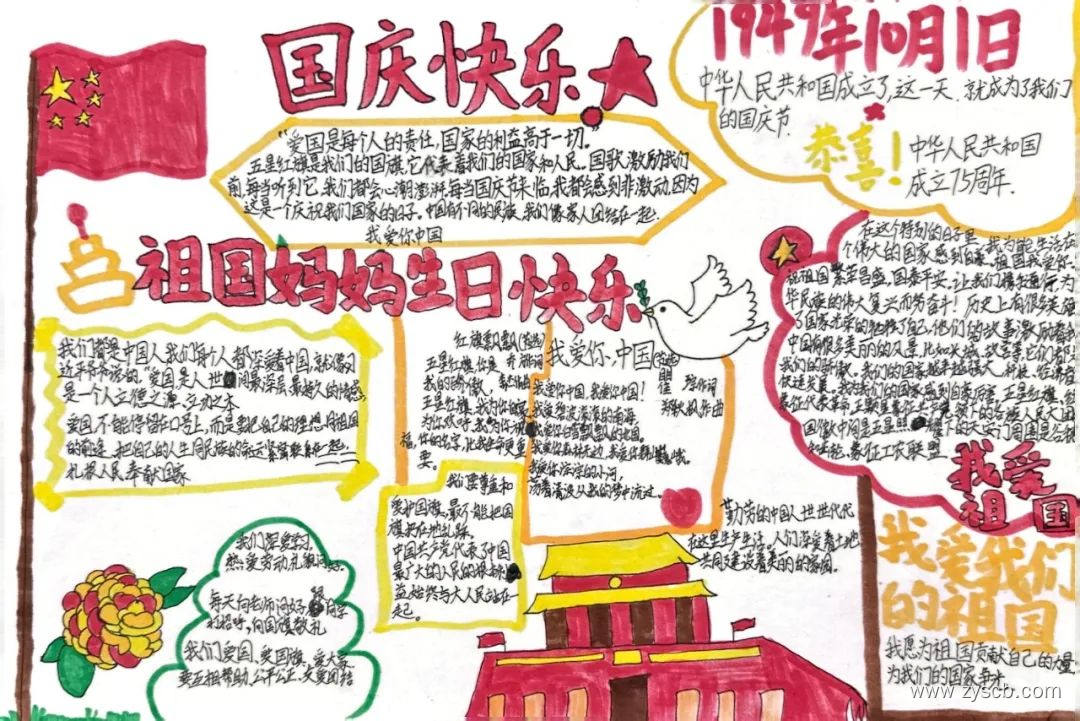 国庆快乐
1949年10月1日
中华人民共和国成立了,这一天,就成为了我们
的国庆节.
恭喜!
中华人民共和国
成立75周年.
"爱国是每个人的责任,国家的利益高于一切."
五星红旗是我们的国旗,它代表着我们的国家和人民.国歌激励我们
前,每当听到它,我们都会心潮澎湃,每当国庆节来临,我都会感到非激动,因为
这是一个庆祝我们国家的日子.中国有不同的民族,我们像家人团结在一起.
我爱你中国
祖国妈妈生日快乐
我们都是中国人,我们每个人都深爱着中国,就像习
近平爷爷说的,"爱国是人世间最深層,最持久的情感,
是一个人立德之源、立功之本
爱国,不能停留在口号上,而是要把自己的理想同祖国
的前途、把自己的人生同民族的命运紧密联系在一起,
扎根人民,奉献国家
红旗飘飘
五星红旗,你是
我的骄傲,
五星红旗,我为你
为你欢呼,我为你
你的名字,比我生命更
要
我爱你,中国
我爱你中国,我爱你中国!
我爱你碧波滚滚的南海
我爱你白雪飘飘的北国
我爱你森林无边,我爱你
我爱你淙淙的小河,
荡着清波从我的梦中流过
我们要尊重和
爱护国旗,最不能把国
旗扔在地乱踩.
中国共产党代表了中国
最广大的人民的根本
益,始终与大人民站在一
起.
在这个特别的日子里
个伟大的国家感到自豪.祖国我爱你.
祝祖国繁荣昌盛,国泰平安,让我们携手
华民族的伟大复兴而努力奋斗!历史上有很多英雄
了国家光荣的牺牲了自己,他们的故事激励着我
中国有很多美丽的风景,比如长城、故宫等,它们都是
我们的骄傲,我们的国家越来越强大
我爱祖国
勤劳的中国人世世代代
在这里生产生活,人们深爱着土地
共同建设着美丽的家园.
我们深爱学习
热爱劳动礼貌
每天向老师问好
打招呼,向国旗敬礼
我们爱国、爱国旗、爱大家
要互相帮助、公平公正、友爱团结
我爱我们
的祖国
我愿为祖国贡献自己的力量
为我们的国家争光.
www.zyscb.com